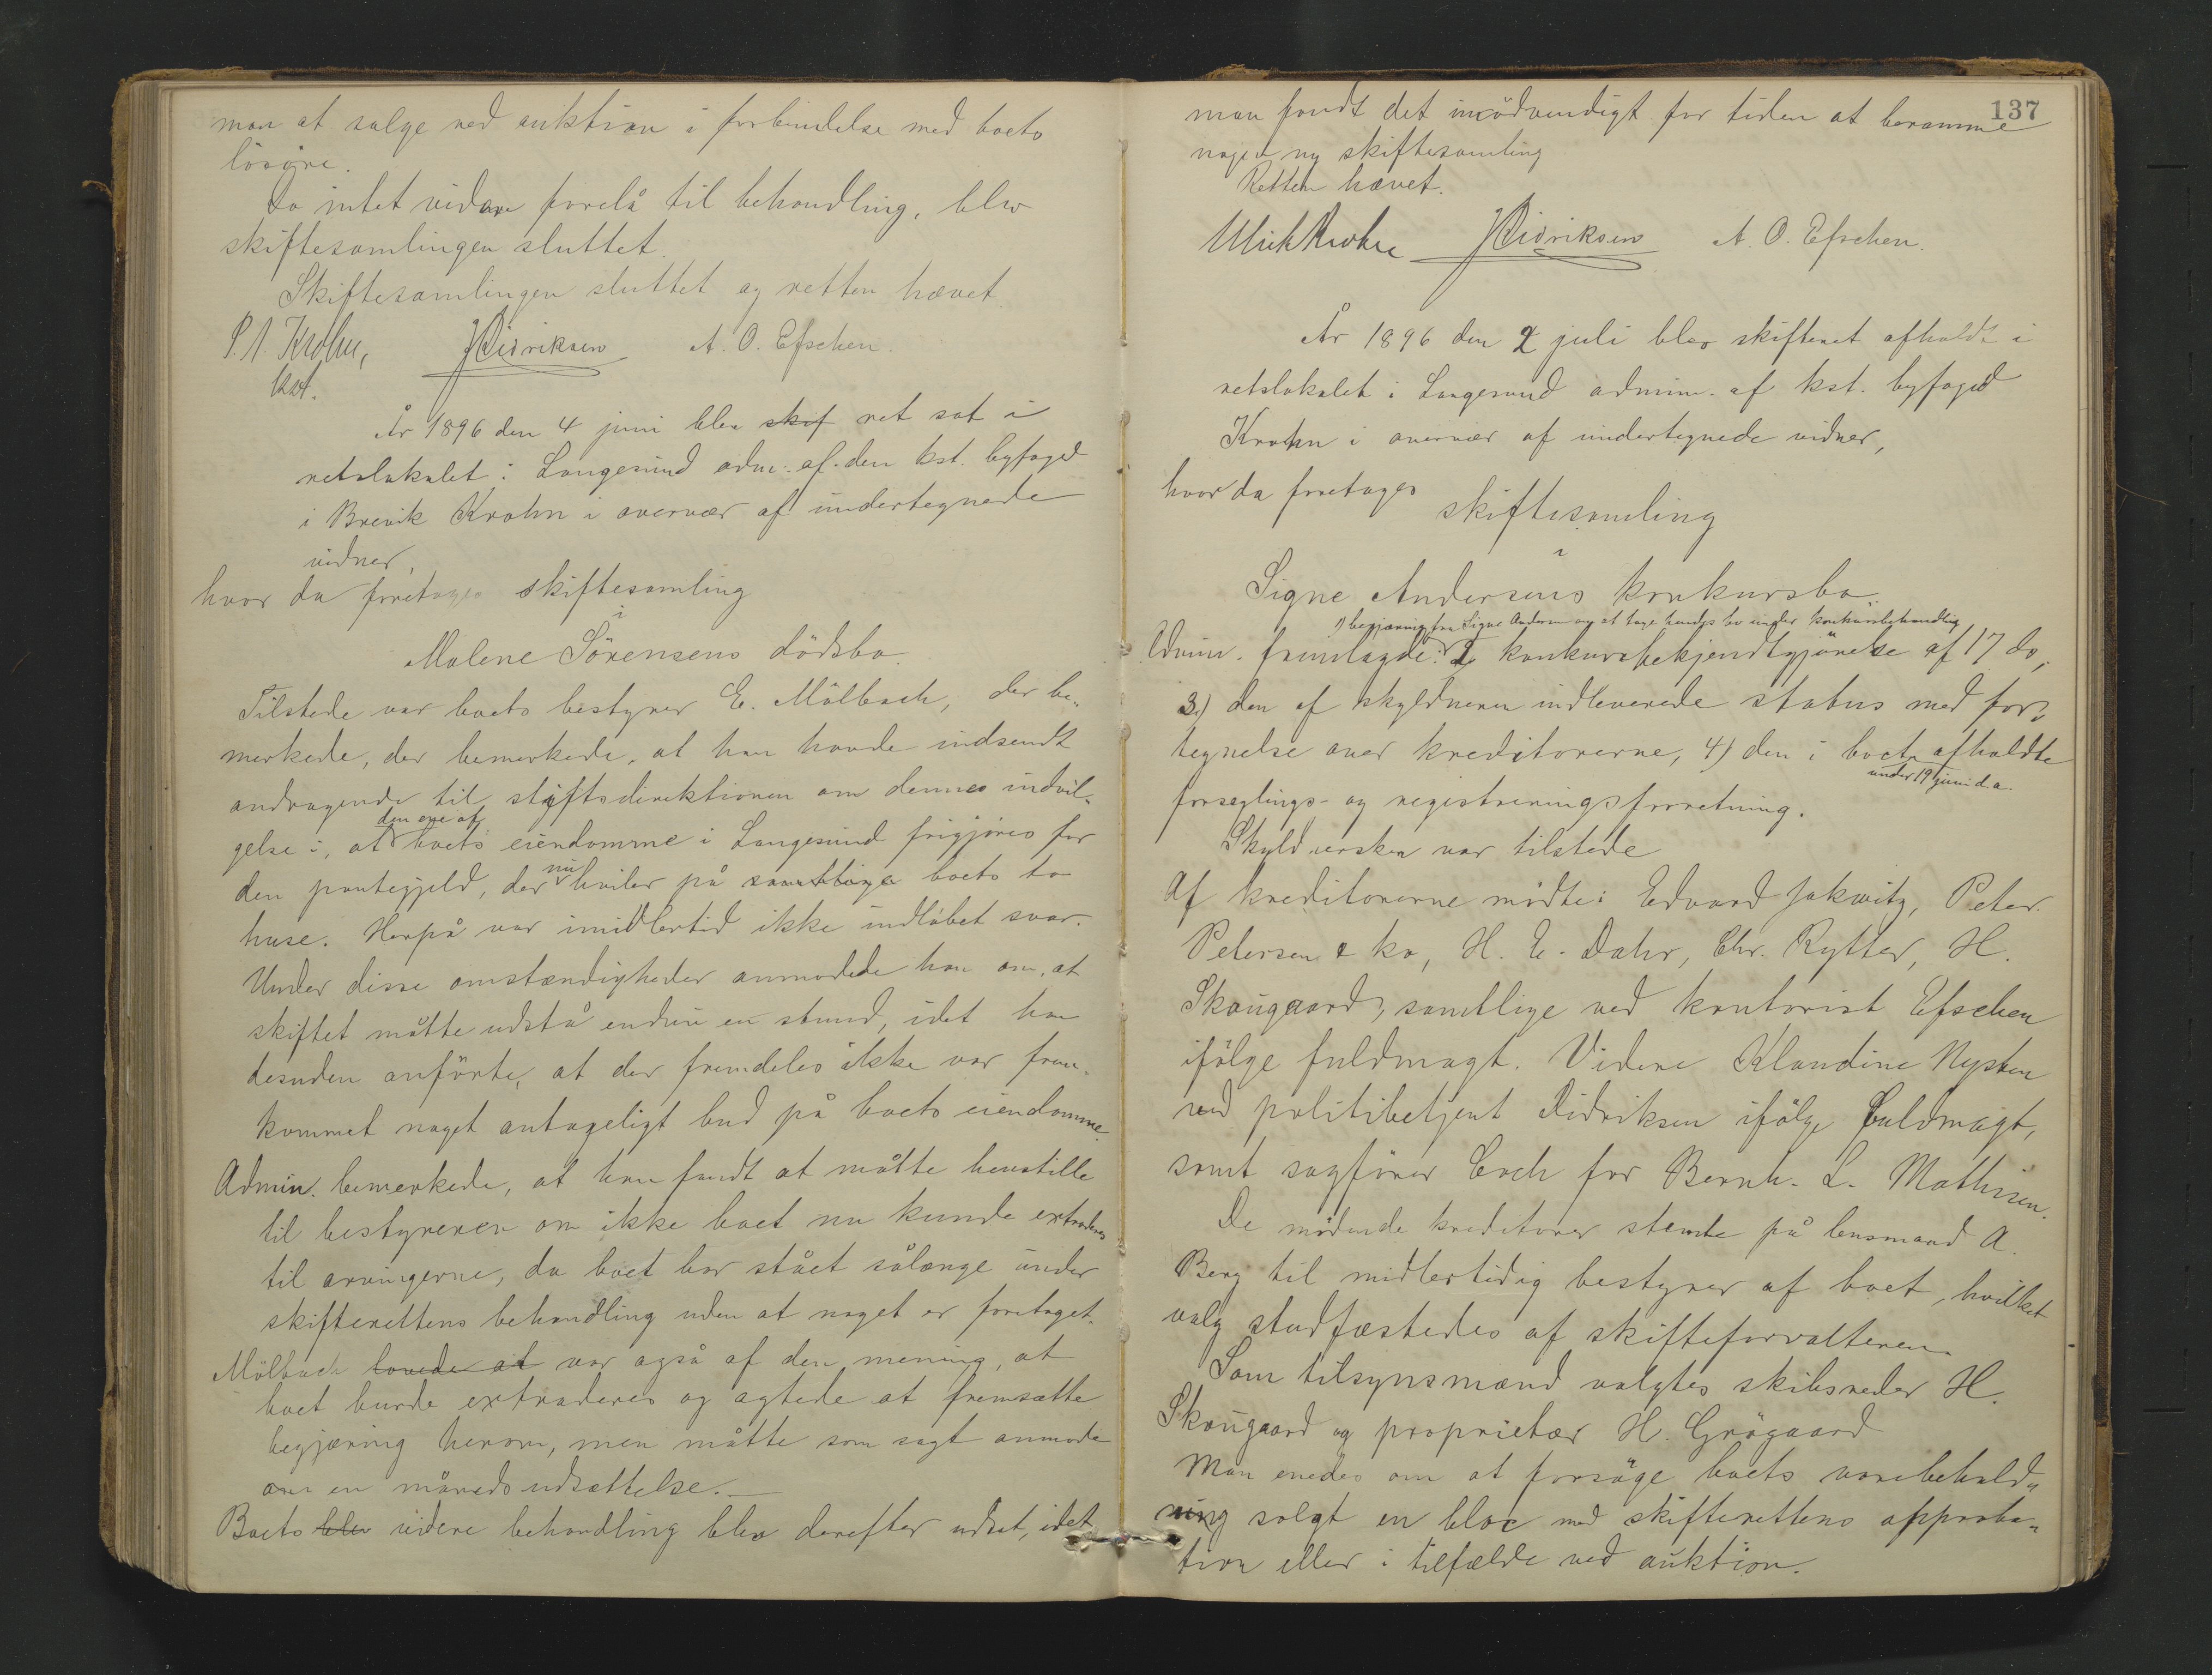 man at sælge ved auktion i forbindelse med boets
løsøre.
Da intet videre forelå til behandling, blev
skiftesamlingen sluttet.
Skiftesamlingen sluttet og retten hævet.
Krohn, JDidriksen A. O. Efschen.
kst.
År 1896 den 4 juni blev skif ret sat i
retslokalet i Langesund adm. af den kst. byfoged
i Brevik Krohn i overvær af undertegnede
vidner,
hvor da foretages skiftesamling
i
Malene Sörensens dödsbo.
Tilstede var boets bestyrer E. Mölbach, der be-
merkede, der bemerkede, at han havde indsendt
andragende til stiftsdirektionen om dennes indvil-
gelse i, at den ene af boets eiendomme i Langesund frigjøres for
den pantegjeld, der nu hviler på samtlige boets to
huse. Herpå var imidlertid ikke indløbet svar.
Under disse omstændigheder anmodede han om, at
skiftet måtte udstå endnu en stund, idet han
desuden anførte, at der fremdeles ikke var frem-
kommet noget antageligt bud på boets eiendomme.
Admin. bemerkede, at han fandt at måtte henstille
til bestyreren om ikke boet nu kunde extraderes
til arvingerne, da boet har stået sålænge under
skifterettens behandling uden at noget er foretaget.
Mölbach lovede at var også af den mening, at
boet burde extraderes og agtede at fremsætte
begjæring herom, men måtte som sagt anmode
om en måneds udsættelse.
Boets blev videre behandling blev derefter udsat, idet
137
man fandt det unødvendigt for tiden at beramme
nogen ny skiftesamling
Retten hævet.
Ulrik Krohn JDidriksen A. O. Efschen.
År 1896 den 2 juli blev skifteret afholdt i
retslokalet i Langesund admin. af kst. byfoged
Krohn i overvær af undertegnede vidner,
hvor da foretages
skiftesamling
i
Signe Andersens konkursbo.
1) begjæring fra Signe Andersen om at tage hendes bo under konkursbehandling
Admin. fremlagde: 2 konkursbekjendtgjørelse af 17 do,
3) den af skyldneren indleverede status med for-
tegnelse over kreditorerne, 4) den i boet afholdte
under 19 juni d.a.
forseglings- og registreringsforretning.
Skyldnersken var tilstede
Af kreditorerne mødte: Edvard Jakwitz, Peter
Petersen & ko, H. E. Dahr, Chr. Rytter, H.
Skougaard, samtlige ved kontorist Efschen
ifølge fuldmagt. Videre Klaudine Nysten
ved politibetjent Didriksen ifølge fuldmagt,
samt sagfører Coch for Bernh. L. Mathisen.
De mødende kreditorer stemte på lensmand A.
Berg til midlertidig bestyrer af boet, hvilket
valg stadfæstedes af skifteforvalteren.
Som tilsynsmænd valgtes skibsreder H.
Skougaard og proprietær H. Grögaard
Man enedes om at forsøge boets varebehold-
ning solgt en bloc med skifterettens approba-
tion eller i tilfælde ved auktion.